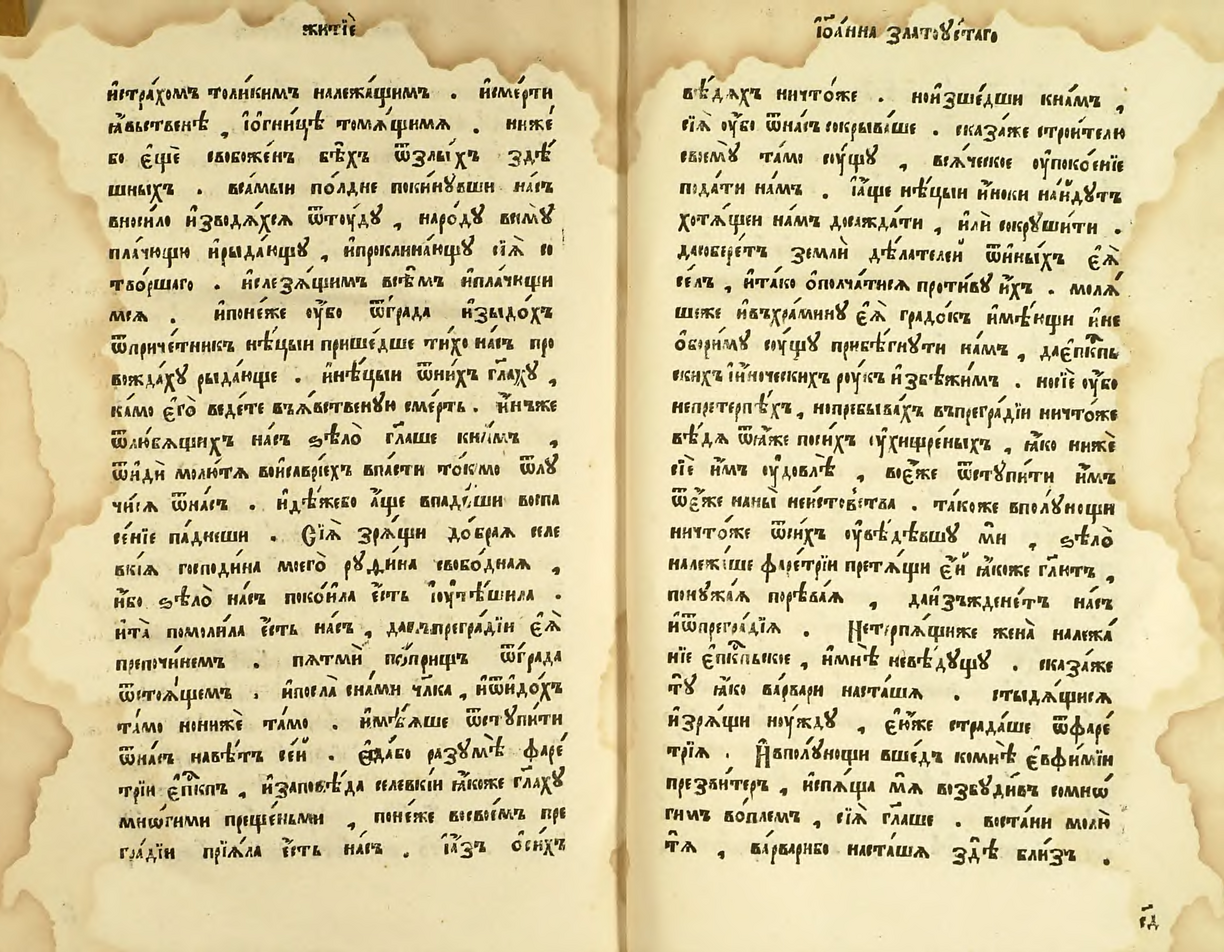 житїѐ
и҆стра́хомъ толи́кимъ належа́щимъ . и҆сме́рти
ꙗ҆́вьственѣ , і҆о҆́гницѣ томѧ́щимѧ . ниже́
бо є҆щѐ свобоже́нъ бѣ́хъ ѿзлы́хъ здѣ́
шныхъ . всѧ́мыи по́лдне поки́нꙋвши на́съ
вноси́ло и҆зводѧ́хсѧ ѿтоу́дꙋ , наро́дꙋ всемꙋ̀
пла́чющю и҆рыда́ющꙋ , и҆проклина́ющꙋ сїѧ̀ со
тво́ршаго . и҆слезѧ́щимъ всѣ́мъ и҆пла́чющи
мсѧ . и҆поне́же ᲂу҆̀бо ѿгра́да и҆зыдо́хъ
ѿприче́тникъ нѣ́цыи прише́дше ти́хо на́съ про
вожда́хꙋ рыда́юще . и҆нѣ́цыи ѿни́хъ гл҃ахꙋ ,
ка́мо є҆го̀ веде́те въꙗ҆́вственꙋю сме́рть . и҆́нъже
ѿлю́бѧщихъ на́съ ѕѣлѡ̀ гл҃аше кни́мъ ,
ѿидѝ молю́тѧ вои҆са́врїехъ впа́сти то́кмо ѿлꙋ
чи́сѧ ѿна́съ . и҆дѣ́жебо а҆́ще впаде́ши воспа
се́нїе па́днеши . Сїѧ̀ зрѧ́щи до́браѧ селе
вкі́ѧ господи́на моего̀ рꙋфи́на свобо́днаѧ ,
и҆́бо ѕѣлѡ̀ на́съ поко́ила є҆́сть і҆оутѣ́шила .
и҆та̀ помоли́ла є҆́сть на́съ , давъпрегра́дїи є҆ѧ̀
препочи́немъ . пѧтмѝ по́прищъ ѿгра́да
ѿстоѧ́щемъ . и҆посла̀ сна́ми чл҃ка , и҆ѿидо́хъ
та́мо нонижѐ та́мо . и҆мѣ́ѧше ѿстꙋпи́ти
ѿна́съ навѣ́тъ се́й . є҆гда́бо разꙋмѣ̀ фаре́
трїи є҆пⷭ҇кпъ , и҆заповѣ́да селевкі́и ꙗ҆́коже гл҃ахꙋ
мнѡ́гими преще́ньми , поне́же восвое́мъ пре
гра́дїи прїѧ́ла є҆́сть на́съ . і҆а҆́зъ о҆си́хъ
і҆ѡа́нна златоꙋ́стаго
вѣ́дѧхъ ничто́же . нои҆зше́дши кна́мъ ,
сїѧ̀ ᲂу҆́бо ѿна́съ сокрыва́ше . сказа́же строи́телю
своемꙋ̀ та́мо сꙋ́щꙋ , всѧ́ческое ᲂу҆покое́нїе
пода́ти на́мъ . і҆а҆́ще нѣ́цыи и҆́ноки на́идꙋтъ
хотѧ́щеи на́мъ досажда́ти , и҆лѝ сокрꙋши́ти .
дасобере́тъ землѝ дѣ́лателей ѿи҆ны́хъ є҆ѧ̀
се́лъ , и҆та́ко о҆полча́тисѧ проти́вꙋ и҆́хъ . молѧ́
шеже и҆въхра́минꙋ є҆ѧ̀ градо́къ и҆мꙋ́щи и҆не
о҆бори́мꙋ сꙋ́щꙋ прибѣ́гнꙋти на́мъ , дає҆пⷭ҇кпь
скихъ і҆и҆́ноческихъ рꙋ́къ и҆збѣжи́мъ . носїѐ ᲂу҆́бо
непретерпѣ́хъ , нопребыва́хъ въпрегра́дїи ничто́же
вѣ́дѧ ѿꙗ҆́же поси́хъ ᲂу҆хищре́ныхъ , ꙗ҆́ко нижѐ
сїѐ и҆́мъ ᲂу҆довлѣ̀ , воє҆́же ѿстꙋпи́ти и҆́мъ
ѿє҆́же на́ны неи́стовства . та́коже вполꙋ́нощи
ничто́же ѿси́хъ ᲂу҆вѣ́дѣвшꙋ мѝ , ѕѣлѡ̀
належа́ше фаре́трїи претѧ́щи є҆́й ꙗ҆́коже гл҃итъ ,
понꙋжа́ѧ порѣва́ѧ , даи҆зъждене́тъ на́съ
и҆ѿпрегра́дїѧ . Нетерпѧ́щиже жена̀ належа́
нїе є҆пⷭ҇кпьское , и҆мнѣ̀ невѣ́дꙋщꙋ . сказа́же
тꙋ̀ ꙗ҆́ко ва́рвари наста́шѧ . стыдѧ́щисѧ
и҆зрѧ́щи нꙋ́ждꙋ , є҆ю́же страда́ше ѿфаре́
трїѧ . И҆вполꙋ́нощи вше́дъ комнѣ̀ є҆вфи́мїи
презви́теръ , и҆спѧ́ща мѧ̀ возбꙋди́въ сомнѡ́
гимъ во́племъ , сїѧ̀ гл҃аше . воста́ни молю́
тѧ , ва́рварибо наста́шѧ здѣ̀ бли́зъ .
є҃д